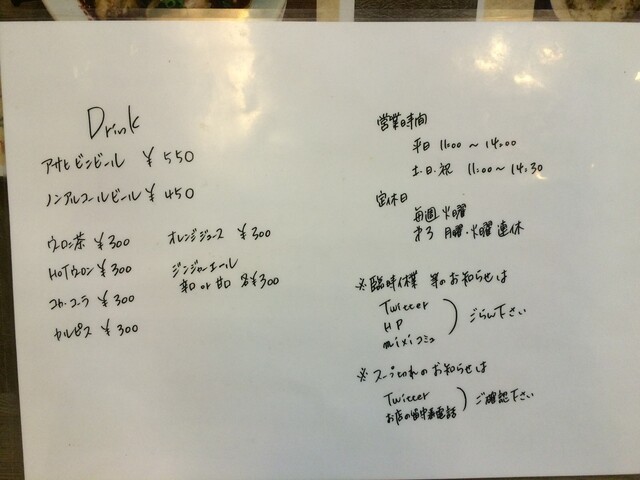 Drink
アサヒビンビール ¥550
ノンアルコールビール ¥450
ウーロン茶 ¥300
HOTウーロン ¥300
コカ・コーラ ¥300
カルピス ¥300
オレンジジュース ¥300
ジンジャーエール
辛口 or 甘口 各¥300
営業時間
平日 11:00 ~ 14:00
土・日・祝 11:00 ~ 14:30
定休日
毎週 火曜
第3 月曜・火曜 連休
※臨時休業 等のお知らせは
Twitter
HP
mixiコミュ
ごらん下さい
※スープ切れのお知らせは
Twitter
お店の留守番電話
ご確認下さい